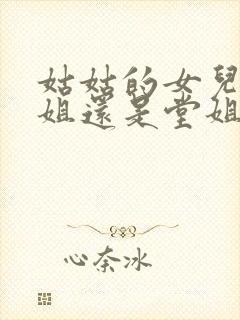 姑姑的女兒
姐還是堂姐
心奈冰